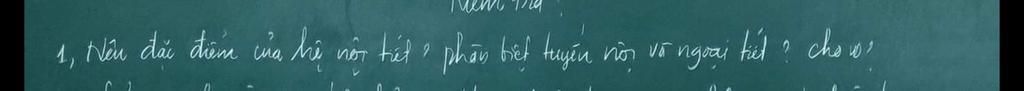 Kiểm tra
1, Nêu đặc điểm của hệ nội tiết? phân biệt tuyến nội và ngoại tiết? cho vd?